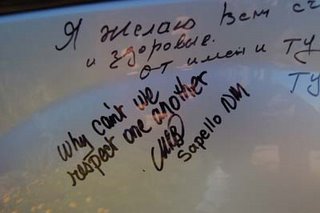 Я желаю Вам
и здоровье.
от имени
why can't we
respect one another
Sapello NM